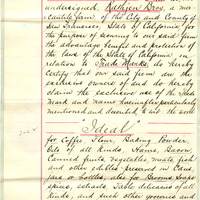 undersigned, Rathjen Bros, a mer-
cantile firm of the City and County of
San Francisco, State of California for
the purpose of securing to our said firm
the advantage benefit and protection of
the laws of the State of California in
relation to Trade Marks, do hereby
certify that our said firm are the
exclusive owners of and do hereby
claim the exclusive use of the Trade
mark and name hereinafter particularly
mentioned and described, to wit the word
"Ideal"
for Coffee, Flour, Baking Powder,
Oils of all kinds, Hams, Bacon,
Canned fruits, vegetables, meats, fish
and other edibles preserved in Cans,
Jars or Bottles, also for Brooms Soaps
spices, extracts, Table delicacies of all
kinds, and such other groceries and